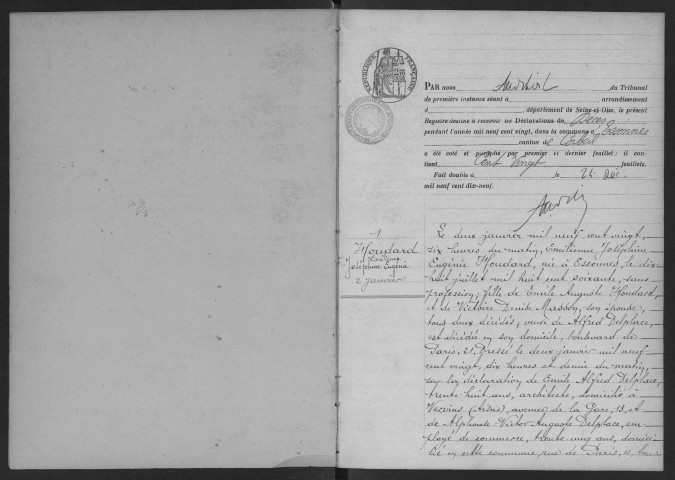 RÉPUBLIQUE FRANÇAISE
PAR nous du Tribunal
de première instance séant à arrondissement
d département de Seine-et-Oise, le présent
Registre destiné à recevoir les Déclarations de Décès
pendant l'année mil neuf cent vingt, dans la commune d'Essonnes
canton de Corbeil
a été coté et paraphé par premier et dernier feuillet; il con-
tient Cent Vingt feuillets.
Fait double à le 24 Déc.
mil neuf cent dix-neuf.
1
Houdard
Emilienne
Joséphine Eugénie
2 janvier
Le deux janvier mil neuf cent vingt,
six heures du matin, Emilienne Joséphine
Eugénie Houdard, née à Essonnes, le dix-
huit juillet mil huit cent soixante, sans
profession; fille de Emile Auguste Houdard,
et de Victoire Denise Masson, son épouse,
tous deux décédés; veuve de Alfred Delplace,
est décédée en son domicile, boulevard de
Paris, 21. Dressé le deux janvier mil neuf
cent vingt, dix heures et demie du matin,
sur la déclaration de Emile Alfred Delplace,
trente huit ans, architecte, domicilié à
Vervins (Aisne), avenue de la Gare, 13, et
de Alphonse Victor Auguste Delplace, em-
ployé de commerce, trente cinq ans, domici-
lié en cette commune, rue de Paris, 11,